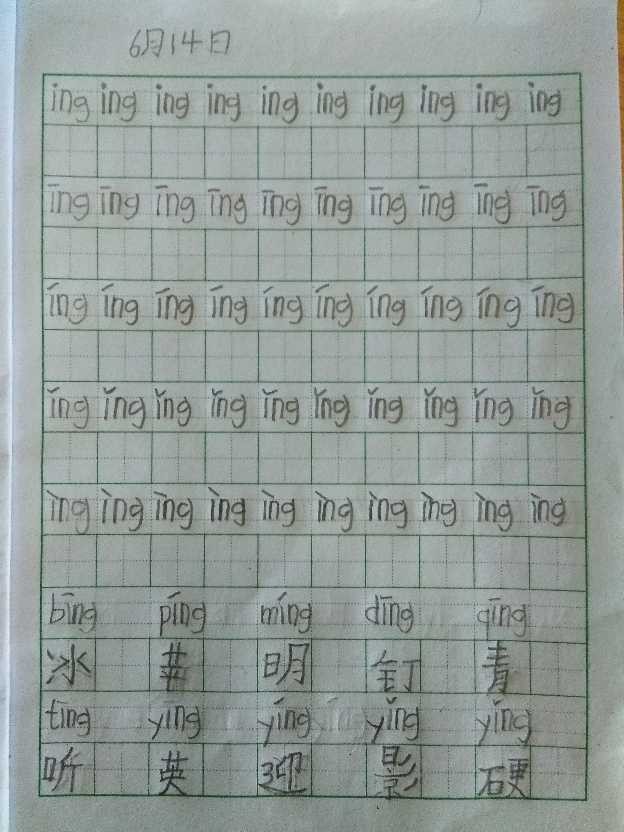 6月14日
ing ing ing ing ing ing ing ing ing ing
īng īng īng īng īng īng īng īng īng īng
íng íng íng íng íng íng íng íng íng íng
ǐng ǐng ǐng ǐng ǐng ǐng ǐng ǐng ǐng ǐng
ìng ìng ìng ìng ìng ìng ìng ìng ìng ìng
bīng píng míng dīng qīng
冰 明 钉 青
tīng yīng yíng yǐng yìng
听 英 迎 影 硬